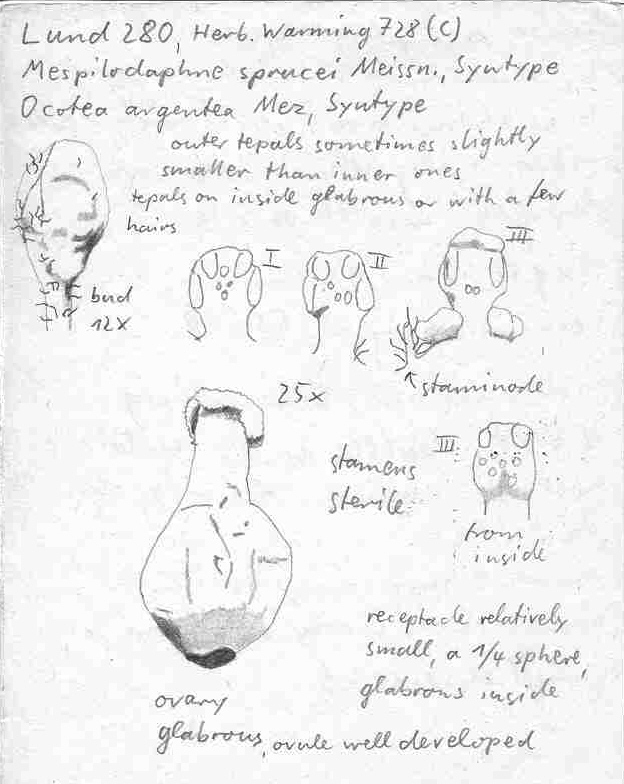 Lund 280, Herb. Warming 728 (C)
Mespilodaphne sprucei Meissn., Syntype
Ocotea argentea Mez, Syntype
outer tepals sometimes slightly
smaller than inner ones
tepals on inside glabrous or with a few
hairs
I
II
III
bud
12x
staminode
25x
stamens
sterile
III
from
inside
receptacle relatively
small, a 1/4 sphere,
glabrous inside
ovary
glabrous, ovule well developed